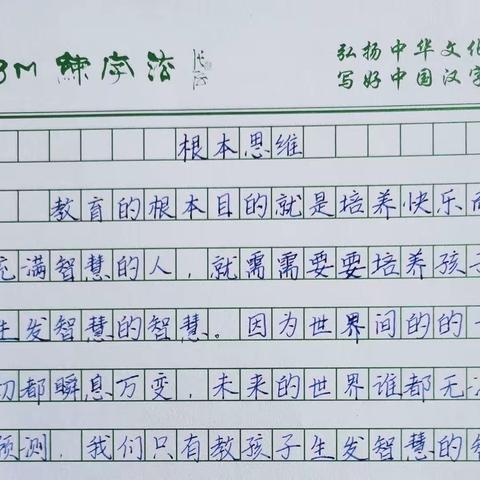 BM 练字法
弘扬中华文化
写好中国汉字
根本思维
教育的根本目的就是培养快乐而
充满智慧的人，就需需要要培养孩子
生发智慧的智慧。因为世界间的的一
切都瞬息万变，未来的世界谁都无法
预测，我们只有教孩子生发智慧的智